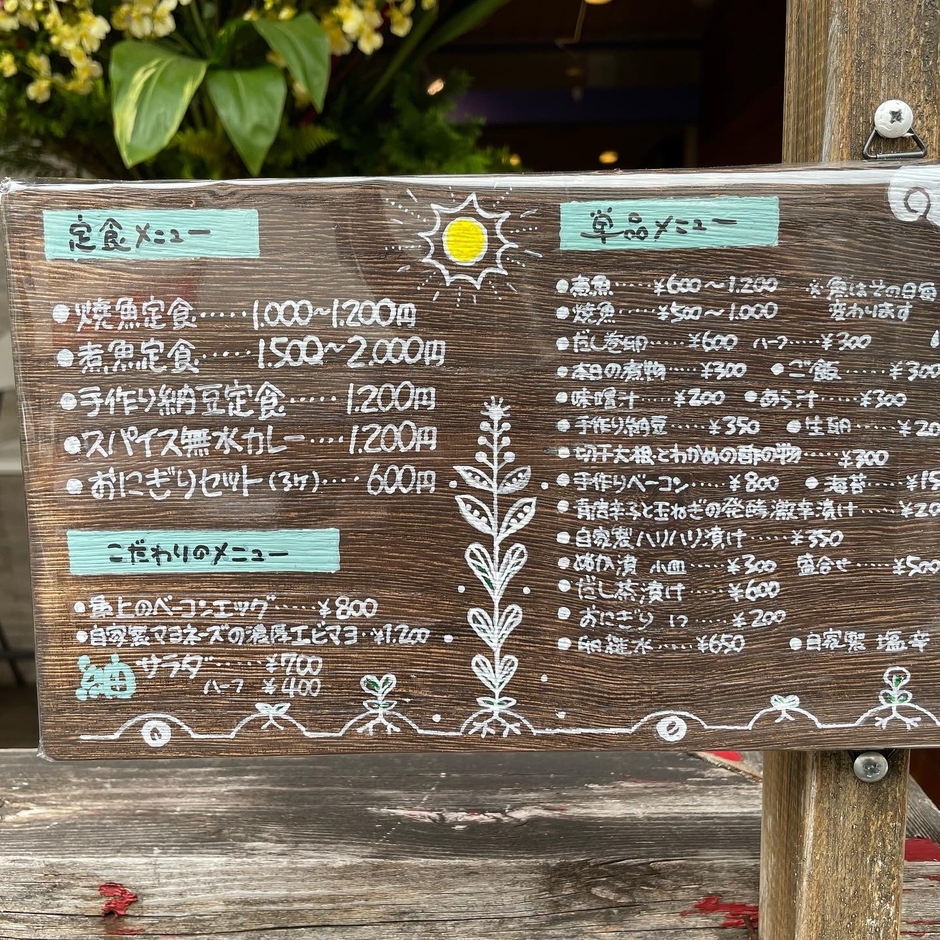 定食メニュー
●焼魚定食‥‥1.000〜1.200円
●煮魚定食‥‥‥1.500〜2.000円
●手作り納豆定食‥‥1.200円
●スパイス無水カレー‥‥1.200円
●おにぎりセット(3ケ)‥‥600円
こだわりのメニュー
●極上のベーコンエッグ‥‥¥800
●自家製マヨネーズの濃厚エビマヨ‥¥1.200
サラダ‥‥‥¥700
ハーフ ¥400
単品メニュー
●煮魚‥‥‥¥600〜1.200 ※魚はその日毎
●焼魚‥‥‥¥500〜1.000 変わります
●だし巻卵‥‥¥600 ハーフ‥‥¥300
●本日の煮物‥‥¥300 ●ご飯‥‥¥300
●味噌汁‥‥¥200 ●あら汁‥‥¥300
●手作り納豆‥‥¥350 ●生卵‥‥¥20
●切干大根とわかめの酢の物‥‥¥300
●手作りベーコン‥‥¥800 ●海苔‥‥¥15
●青唐辛子と玉ねぎの発酵激辛漬け‥‥¥20
●自家製ハリハリ漬け‥‥¥350
●ぬか漬 小皿‥‥¥300 盛合せ‥‥¥500
●だし茶漬け‥‥¥600
●おにぎり 1つ‥‥¥200
●卵雑炊‥‥¥650 ●自家製 塩辛